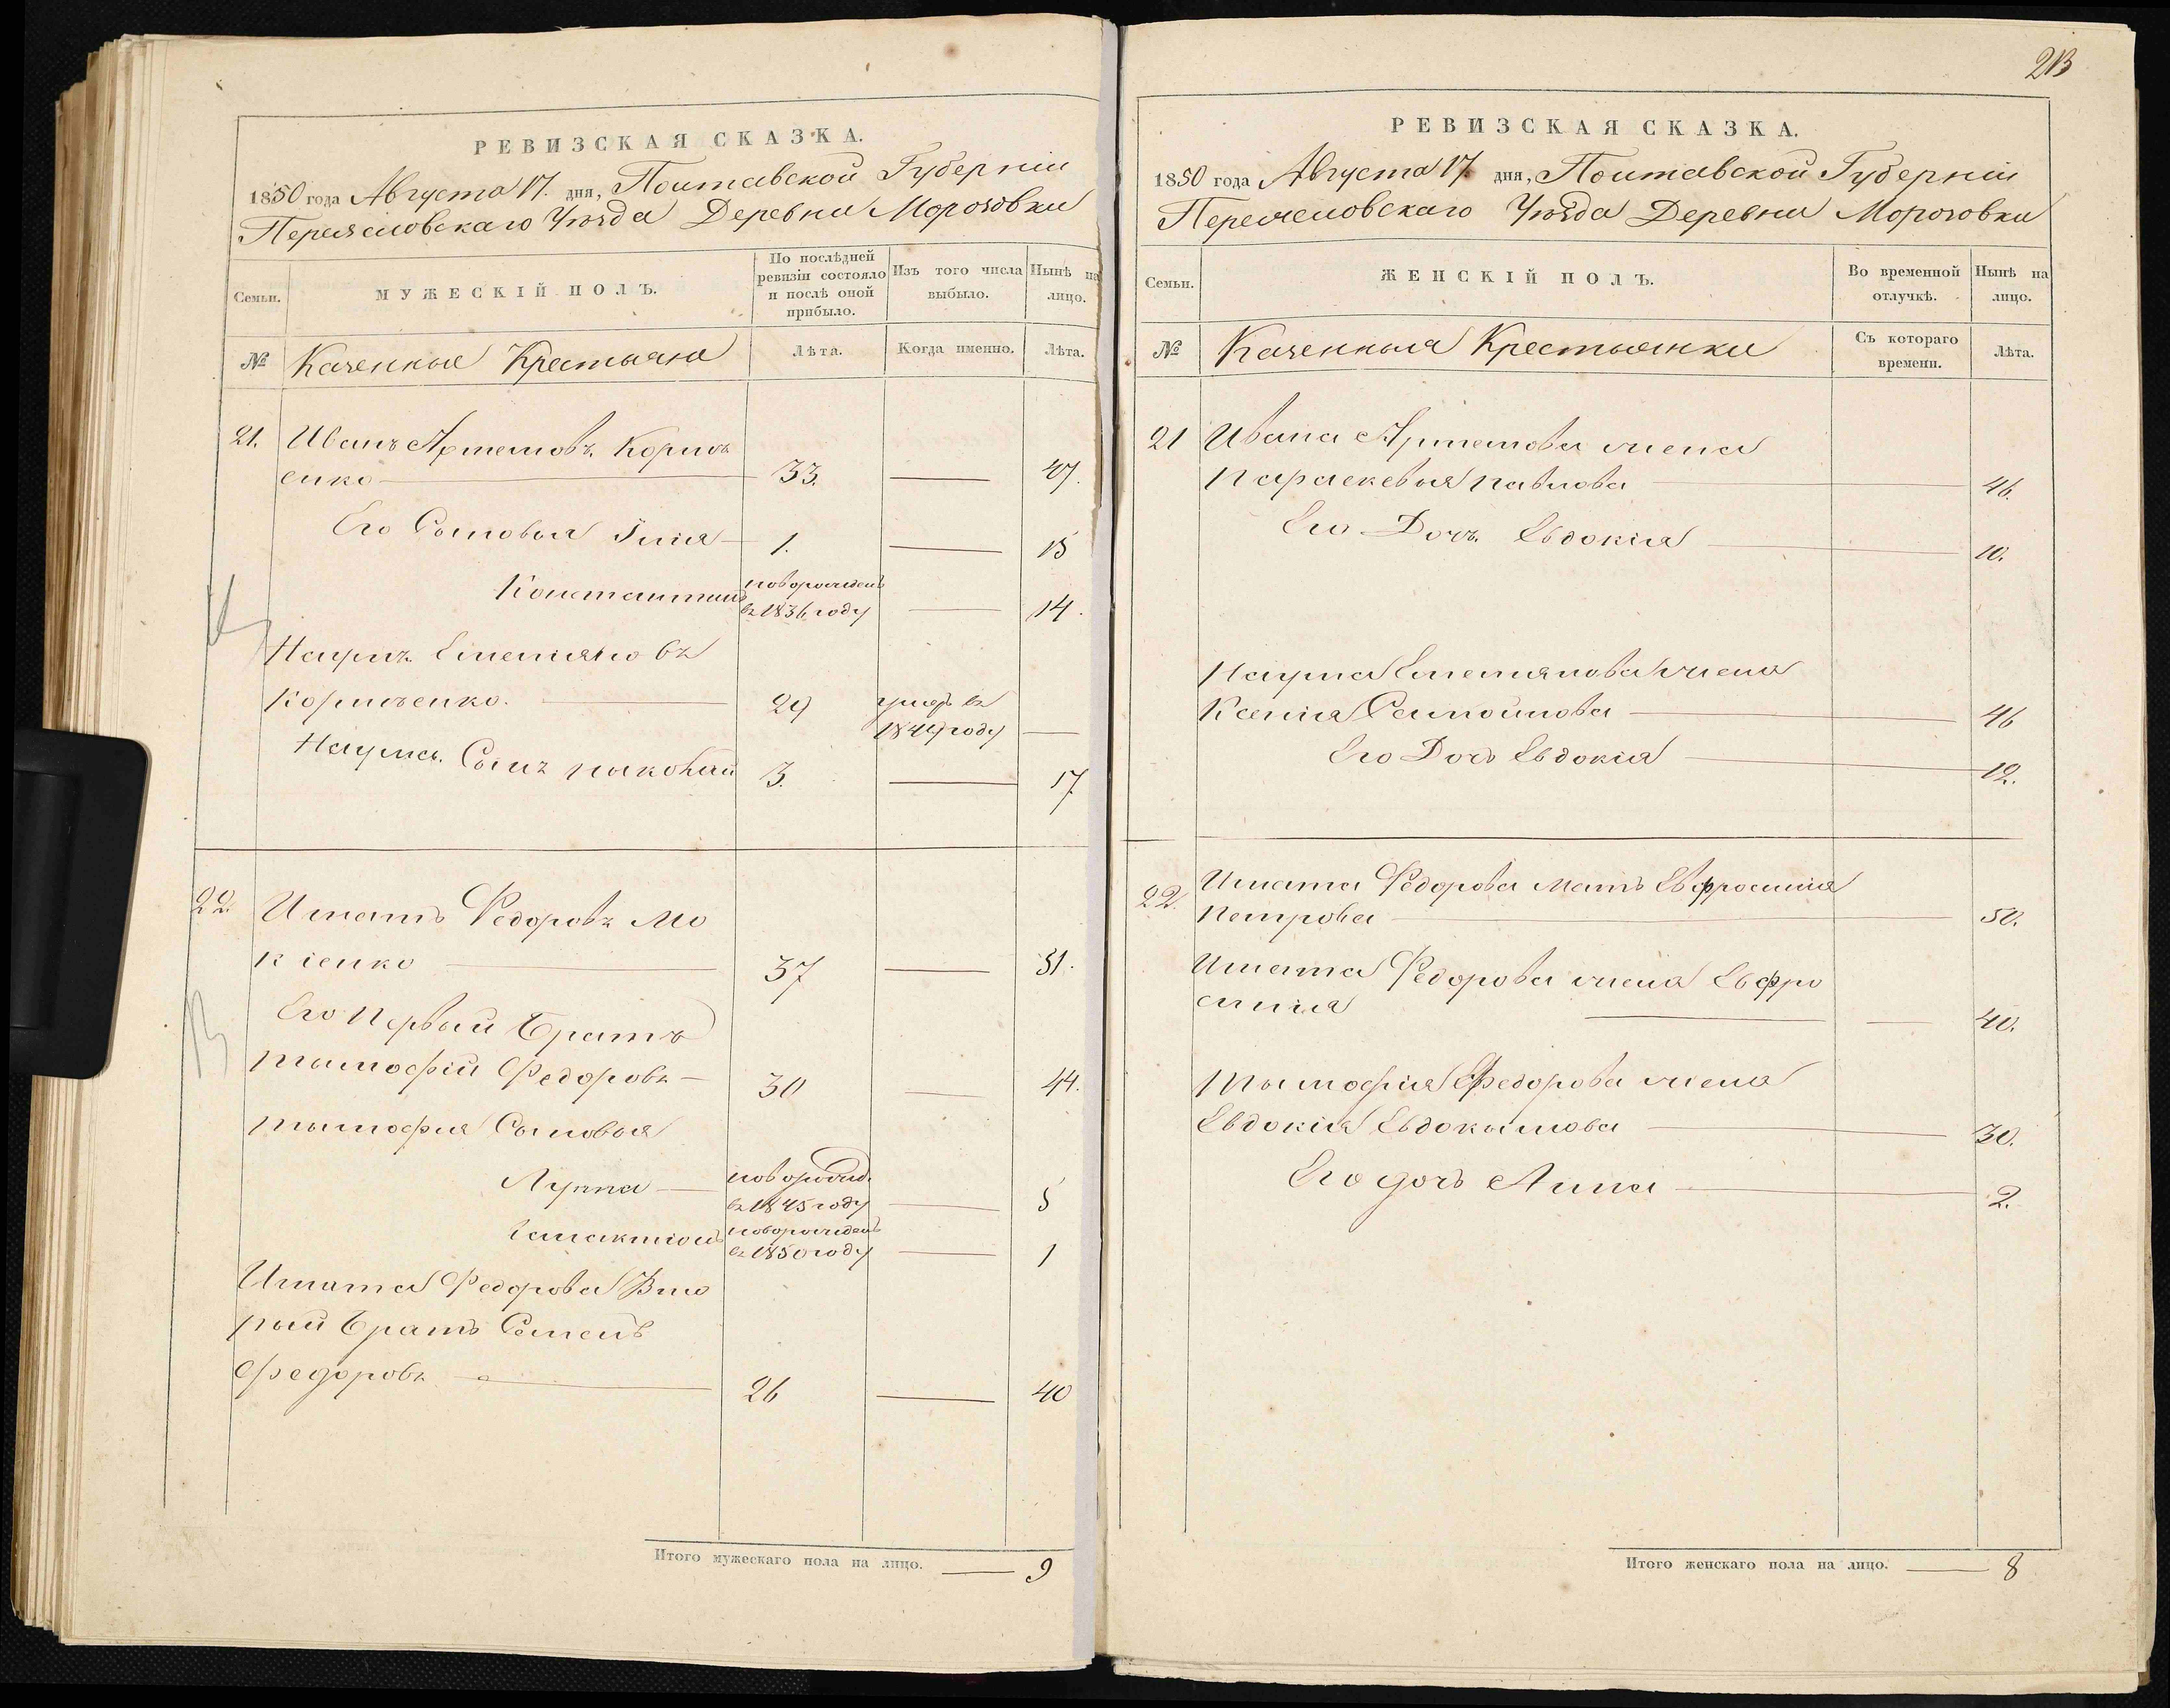 РЕВИЗСКАЯ СКАЗКА.
1850 года Августа 17. дня, Полтавской Губерніи
Переясловскаго Уѣзда Деревни Морозовки
Семьи.
МУЖЕСКІЙ ПОЛЪ.
По послѣдней ревизіи состояло и послѣ оной прибыло.
Изъ того числа выбыло.
Нынѣ на лицо.
№
Казенные Крестьяне
Лѣта.
Когда именно.
Лѣта.
21. Иванъ Артемовъ Корнѣ
енко 33. 47.
Его Сыновья Илія 1. 15
Константинъ новорожденъ
въ 1836 году 14.
Наумъ Емеліяновъ
Корнѣенко. 29 умеръ въ
1849 году
Наума Сынъ 3. 17
22. Игнатъ Федоровъ Мо
кіенко 37 51.
Его Первый Братъ
Тымофій Федоровъ 30 44.
Тымофія Сыновья
Луппа новорожд.
въ 1845 году 5
Галактіонъ новорожденъ
въ 1850 году 1
Игната Федорова Вто
рый Братъ Семенъ
Федоровъ 26 40
Итого мужескаго пола на лицо. 9
213
РЕВИЗСКАЯ СКАЗКА.
1850 года Августа 17. дня, Полтавской Губерніи
Переясловскаго Уѣзда Деревни Морозовки
Семьи.
ЖЕНСКІЙ ПОЛЪ.
Во временной отлучкѣ.
Нынѣ на лицо.
№
Казенныя Крестьянки
Съ котораго времени.
Лѣта.
21 Ивана Артемова жена
Параскевья Павлова 46.
Его Дочь Евдокія 10.
Наума Емеліянова жена
Ксенія Самойлова 46
Его Дочь Евдокія 12.
22. Игната Федорова мать Евфросинія
Петрова 50.
Игната Федорова жена Евфро
синія 40.
Тымофія Федорова жена
Евдокія Евдокымова 30.
Его дочь Анна 2.
Итого женскаго пола на лицо. 8